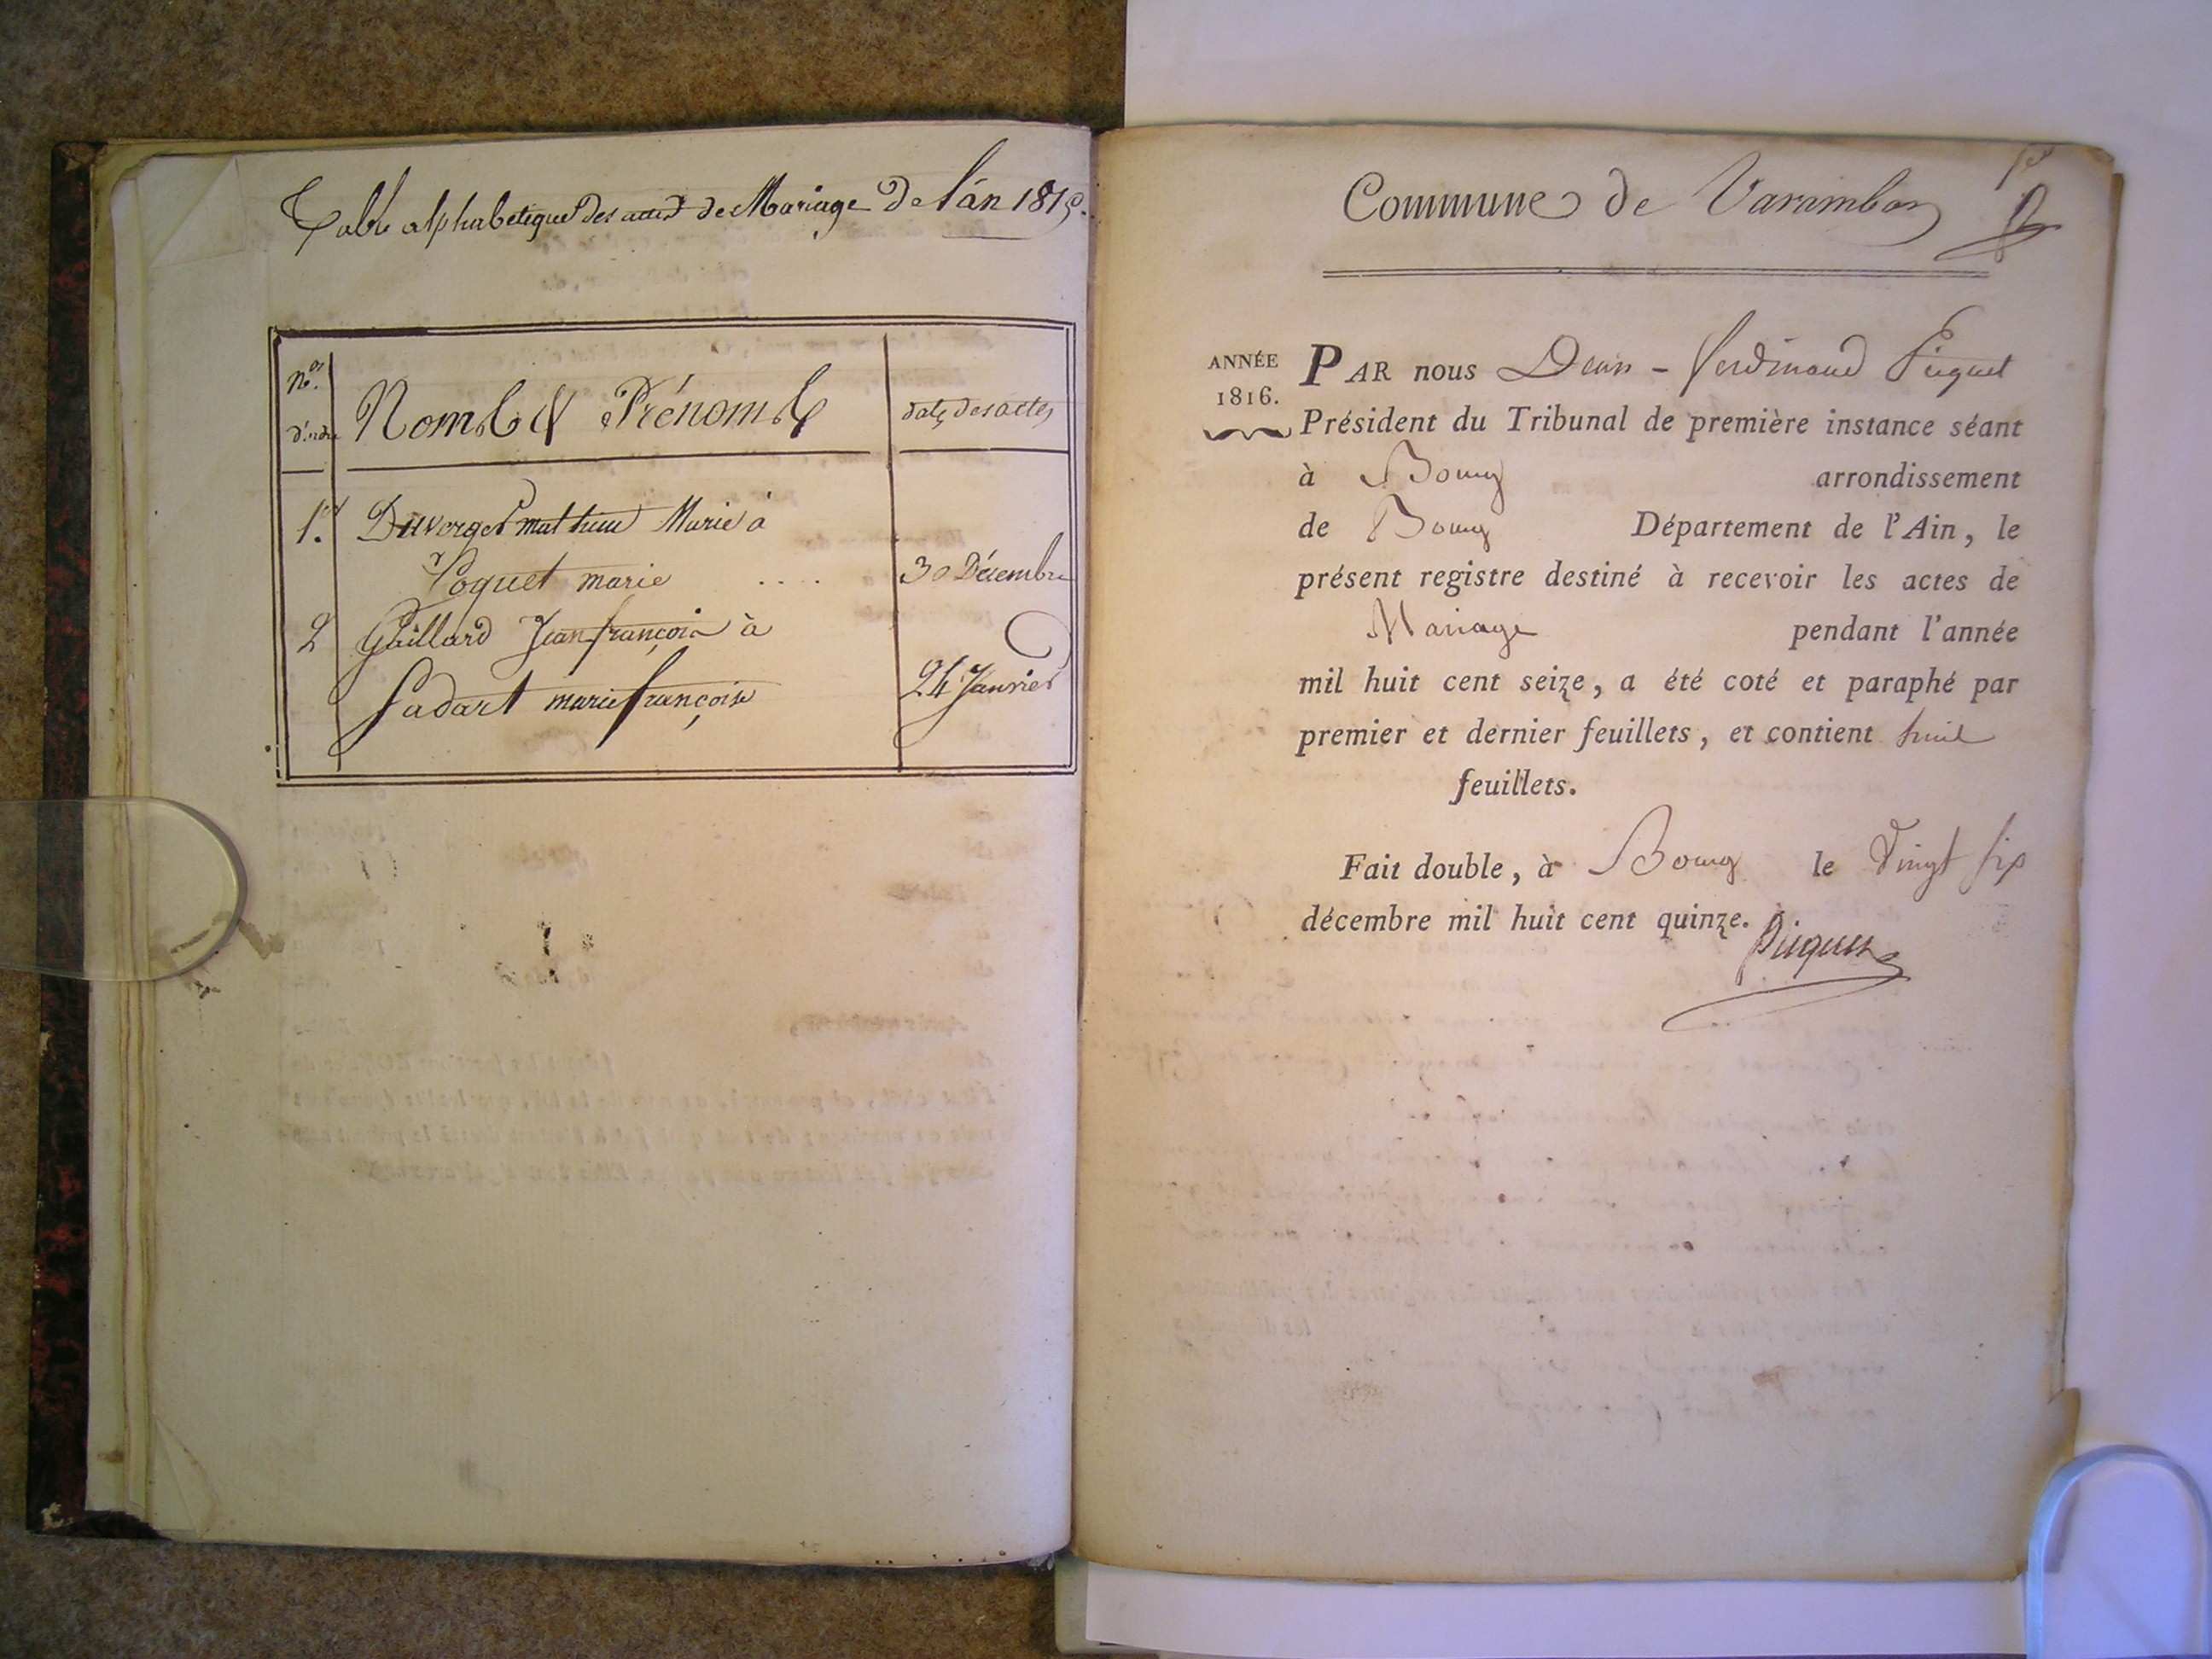 Table alphabetique des actes de Mariage De l'an 1815.
Nos. d'ordre
Noms & Prénoms
date des actes
1.er Duverger mathieu Marie à
Poquet marie .... 30 Décembre
2 Gaillard Jean françois à
Sadart marie françoise 24 Janvier
Commune de Varambon
ANNÉE
1816.
PAR nous Denis - ferdinand Piquet
Président du Tribunal de première instance séant
à Bourg arrondissement
de Bourg Département de l'Ain, le
présent registre destiné à recevoir les actes de
Mariage pendant l'année
mil huit cent seize, a été coté et paraphé par
premier et dernier feuillets, et contient huit
feuillets.
Fait double, à Bourg le Vingt six
décembre mil huit cent quinze.
Piquet